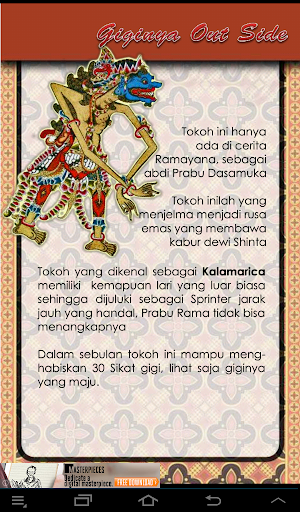 Giginya Out Side
Tokoh ini hanya
ada di cerita
Ramayana, sebagai
abdi Prabu Dasamuka
Tokoh inilah yang
menjelma menjadi rusa
emas yang membawa
kabur dewi Shinta
Tokoh yang dikenal sebagai Kalamarica
memiliki kemapuan lari yang luar biasa
sehingga dijuluki sebagai Sprinter jarak
jauh yang handal, Prabu Rama tidak bisa
menangkapnya
Dalam sebulan tokoh ini mampu meng-
habiskan 30 Sikat gigi, lihat saja giginya
yang maju.
MASTERPIECES
Dedicate a
digital masterpiece
FREE DOWNLOAD